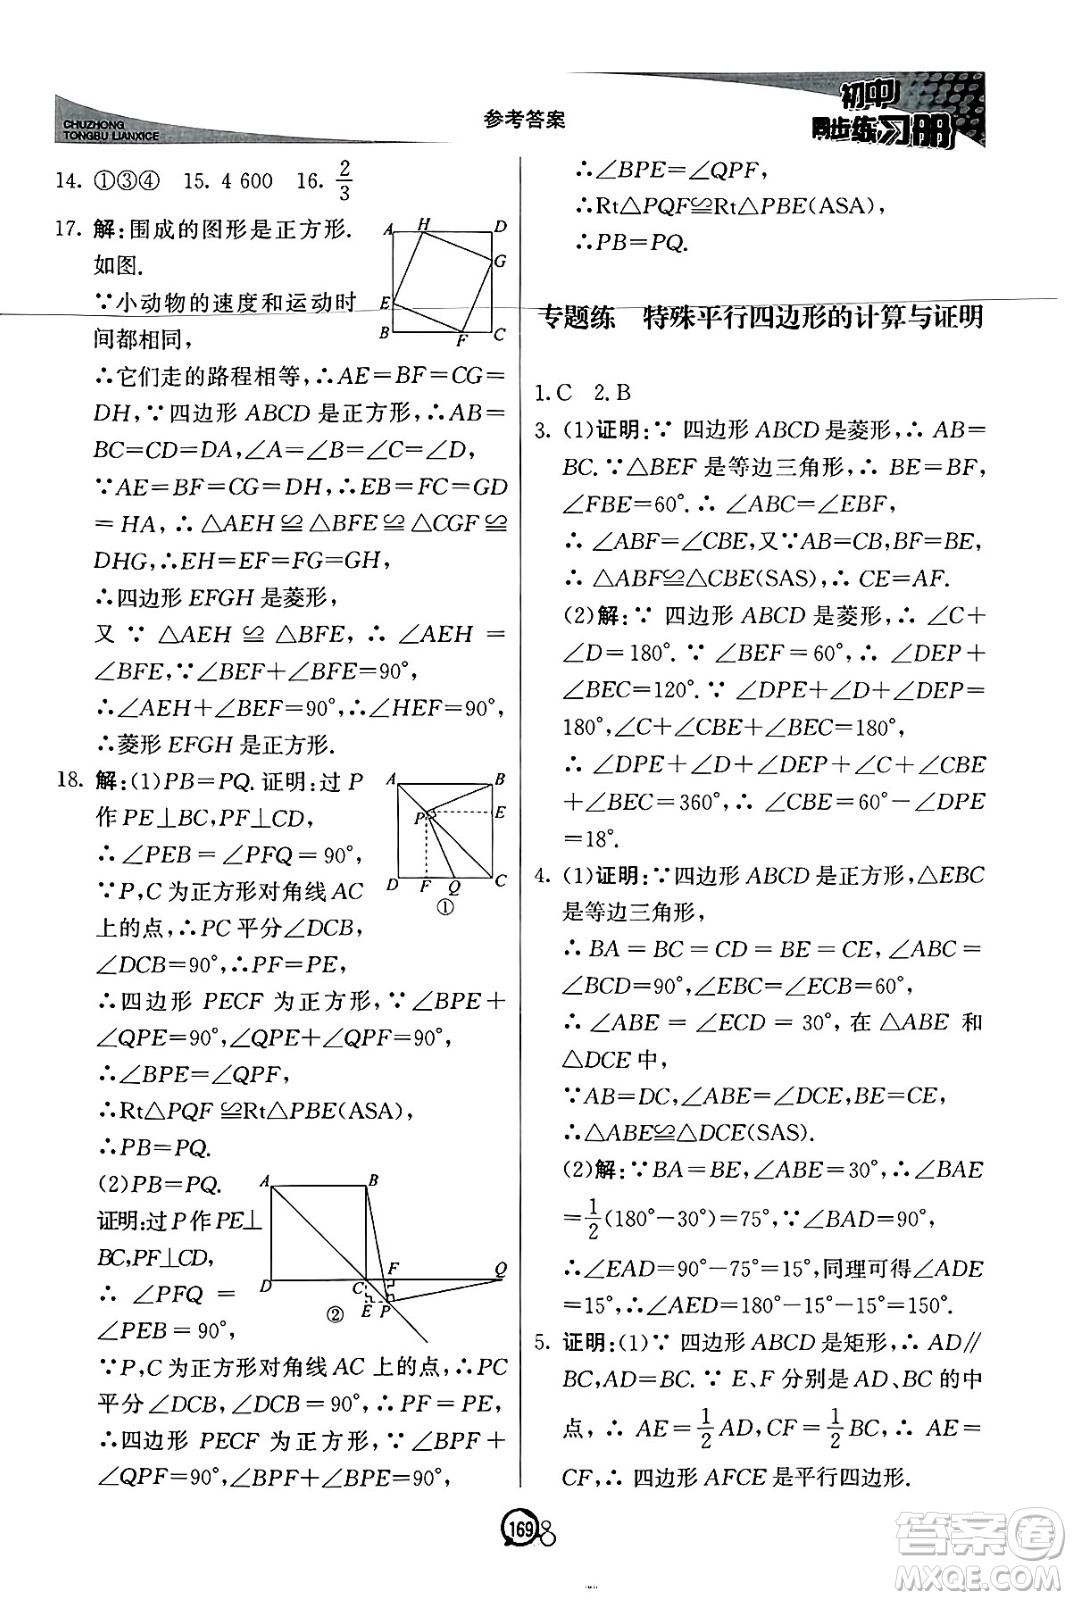 CHUZHONG
TONGBU LIANXICE
参考答案
初中
同步练习册
14. ①③④　15. 4 600　16. 2/3
17. 解:围成的图形是正方形.
如图.
∵小动物的速度和运动时
间都相同,
∴它们走的路程相等,∴AE=BF=CG=
DH,∵四边形 ABCD 是正方形,∴AB=
BC=CD=DA,∠A=∠B=∠C=∠D.
∵AE=BF=CG=DH,∴EB=FC=GD
=HA,∴△AEH≌△BFE≌△CGF≌
DHG,∴EH=EF=FG=GH,
∴四边形 EFGH 是菱形,
又∵△AEH≌△BFE,∴∠AEH=
∠BFE,∵∠BEF+∠BFE=90°,
∴∠AEH+∠BEF=90°,∴∠HEF=90°,
∴菱形 EFGH 是正方形.
A H D
G
E
B F C
18. 解:(1)PB=PQ.证明:过 P
作 PE⊥BC,PF⊥CD,
∴∠PEB=∠PFQ=90°,
∵P,C 为正方形对角线 AC
上的点,∴PC 平分∠DCB,
∠DCB=90°,∴PF=PE,
∴四边形 PECF 为正方形,∵∠BPE+
∠QPE=90°,∠QPE+∠QPF=90°,
∴∠BPE=∠QPF,
∴Rt△PQF≌Rt△PBE(ASA),
∴PB=PQ.
A B
P E
D F Q C
①
(2)PB=PQ.
证明:过 P 作 PE⊥
BC,PF⊥CD,
∴∠PFQ=
∠PEB=90°,
∵P,C 为正方形对角线 AC 上的点,∴PC
平分∠DCB,∠DCB=90°,∴PF=PE,
∴四边形 PECF 为正方形,∵∠BPF+
∠QPF=90°,∠BPF+∠BPE=90°,
A B
D C F Q
E P
②
∴∠BPE=∠QPF,
∴Rt△PQF≌Rt△PBE(ASA),
∴PB=PQ.
专题练　特殊平行四边形的计算与证明
1. C　2. B
3. (1)证明:∵四边形 ABCD 是菱形,∴AB=
BC.∵△BEF 是等边三角形,∴BE=BF,
∠FBE=60°.∴∠ABC=∠EBF,
∴∠ABF=∠CBE,又∵AB=CB,BF=BE,
∴△ABF≌△CBE(SAS),∴CE=AF.
(2)解:∵四边形 ABCD 是菱形,∴∠C+
∠D=180°.∵∠BEF=60°,∴∠DEP+
∠BEC=120°.∵∠DPE+∠D+∠DEP=
180°,∠C+∠CBE+∠BEC=180°,
∴∠DPE+∠D+∠DEP+∠C+∠CBE
+∠BEC=360°,∴∠CBE=60°-∠DPE
=18°.
4. (1)证明:∵四边形 ABCD 是正方形,△EBC
是等边三角形,
∴BA=BC=CD=BE=CE,∠ABC=
∠BCD=90°,∠EBC=∠ECB=60°,
∴∠ABE=∠ECD=30°,在△ABE 和
△DCE 中,
∵AB=DC,∠ABE=∠DCE,BE=CE,
∴△ABE≌△DCE(SAS).
(2)解:∵BA=BE,∠ABE=30°,∴∠BAE
=1/2(180°-30°)=75°,∵∠BAD=90°,
∴∠EAD=90°-75°=15°,同理可得∠ADE
=15°,∴∠AED=180°-15°-15°=150°.
5. 证明:(1)∵四边形 ABCD 是矩形,∴AD∥
BC,AD=BC.∵E、F 分别是 AD、BC 的中
点,∴AE=1/2AD,CF=1/2BC,∴AE=
CF,∴四边形 AFCE 是平行四边形.
169
答案圈
MXQE.COM